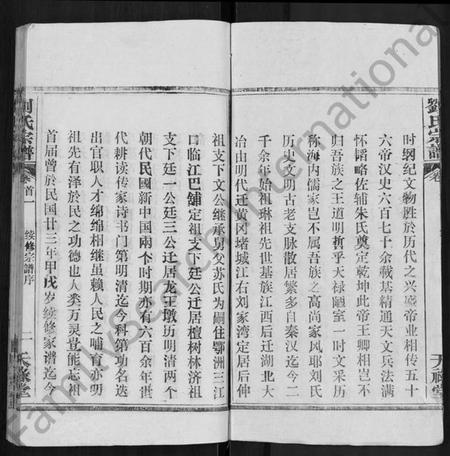 劉氏宗譜
卷
天祿堂
时纲纪文物胜於历代之兴盛帝业相传五十
六帝汉史六百七十余载基精通天文兵法满
怀韬略佐辅朱氏奠定乾坤此帝王卿相岂不
归吾族之王道明哲乎天禄阁室一时文采历
称海内儒家岂不属吾族之高尚家风耶刘氏
历史文明古老支脉散居繁多自秦汉迄今二
千余年始祖琳祖先世基族江西后迁湖北大
冶由明代迁黄冈堵城江右刘家湾定居后伸
祖支下文公继承舅父苏氏为嗣住鄂洲三江
口临江巴铺定祖支下廷公迁居檀树林济祖
支下廷一公廷三公迁居龙王墩历明清两个
朝代民國新中国兩个时期亦有六百余年徙
代耕读传家诗书门第明清迄今科第功名选
出官职人才绵绵相继虽赖人民之哺育亦明
祖先有泽於民之功德也人类万灵岂能忘祖
首届曾於民国廿三年甲戌岁续修家谱迄今
劉氏宗譜
卷首
续修宗谱序
二
天祿堂
FamilySearch International